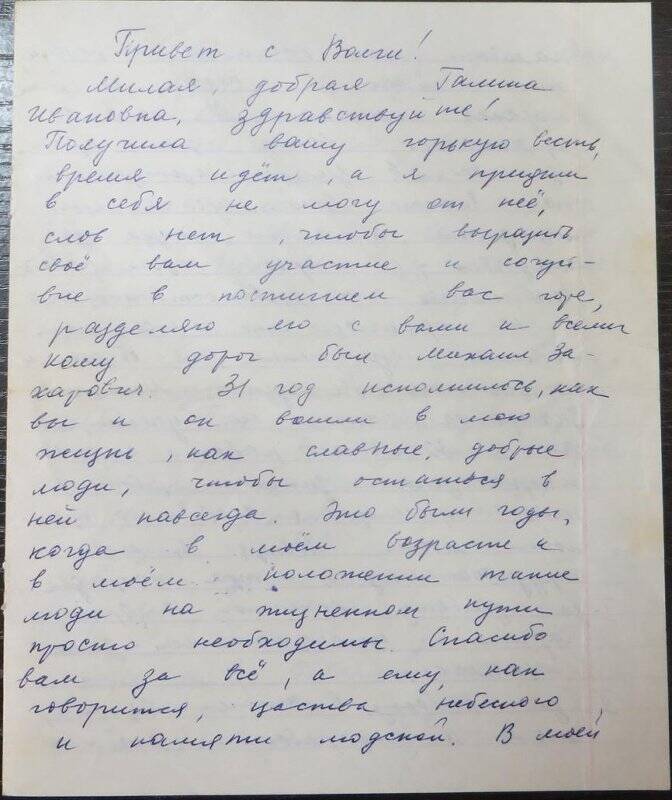 Привет с Волги!
Милая, добрая Галина
Ивановна, здравствуйте!
Получила вашу горькую весть,
время идёт, а я придти
в себя не могу от неё,
слов нет, чтобы выразить
своё вам участие и сочуст-
вие в постигшем вас горе,
разделяю его с вами и всеми
кому дорог был Михаил За-
харович. 31 год исполнилось, как
вы и он вошли в мою
жизнь, как славные, добрые
люди, чтобы остаться в
ней навсегда. Это были годы,
когда в моём возрасте и
в моём положении такие
люди на жизненном пути
просто необходимы. Спасибо
вам за всё, а ему, как
говорится, царства небесного
и памяти людской. В моей